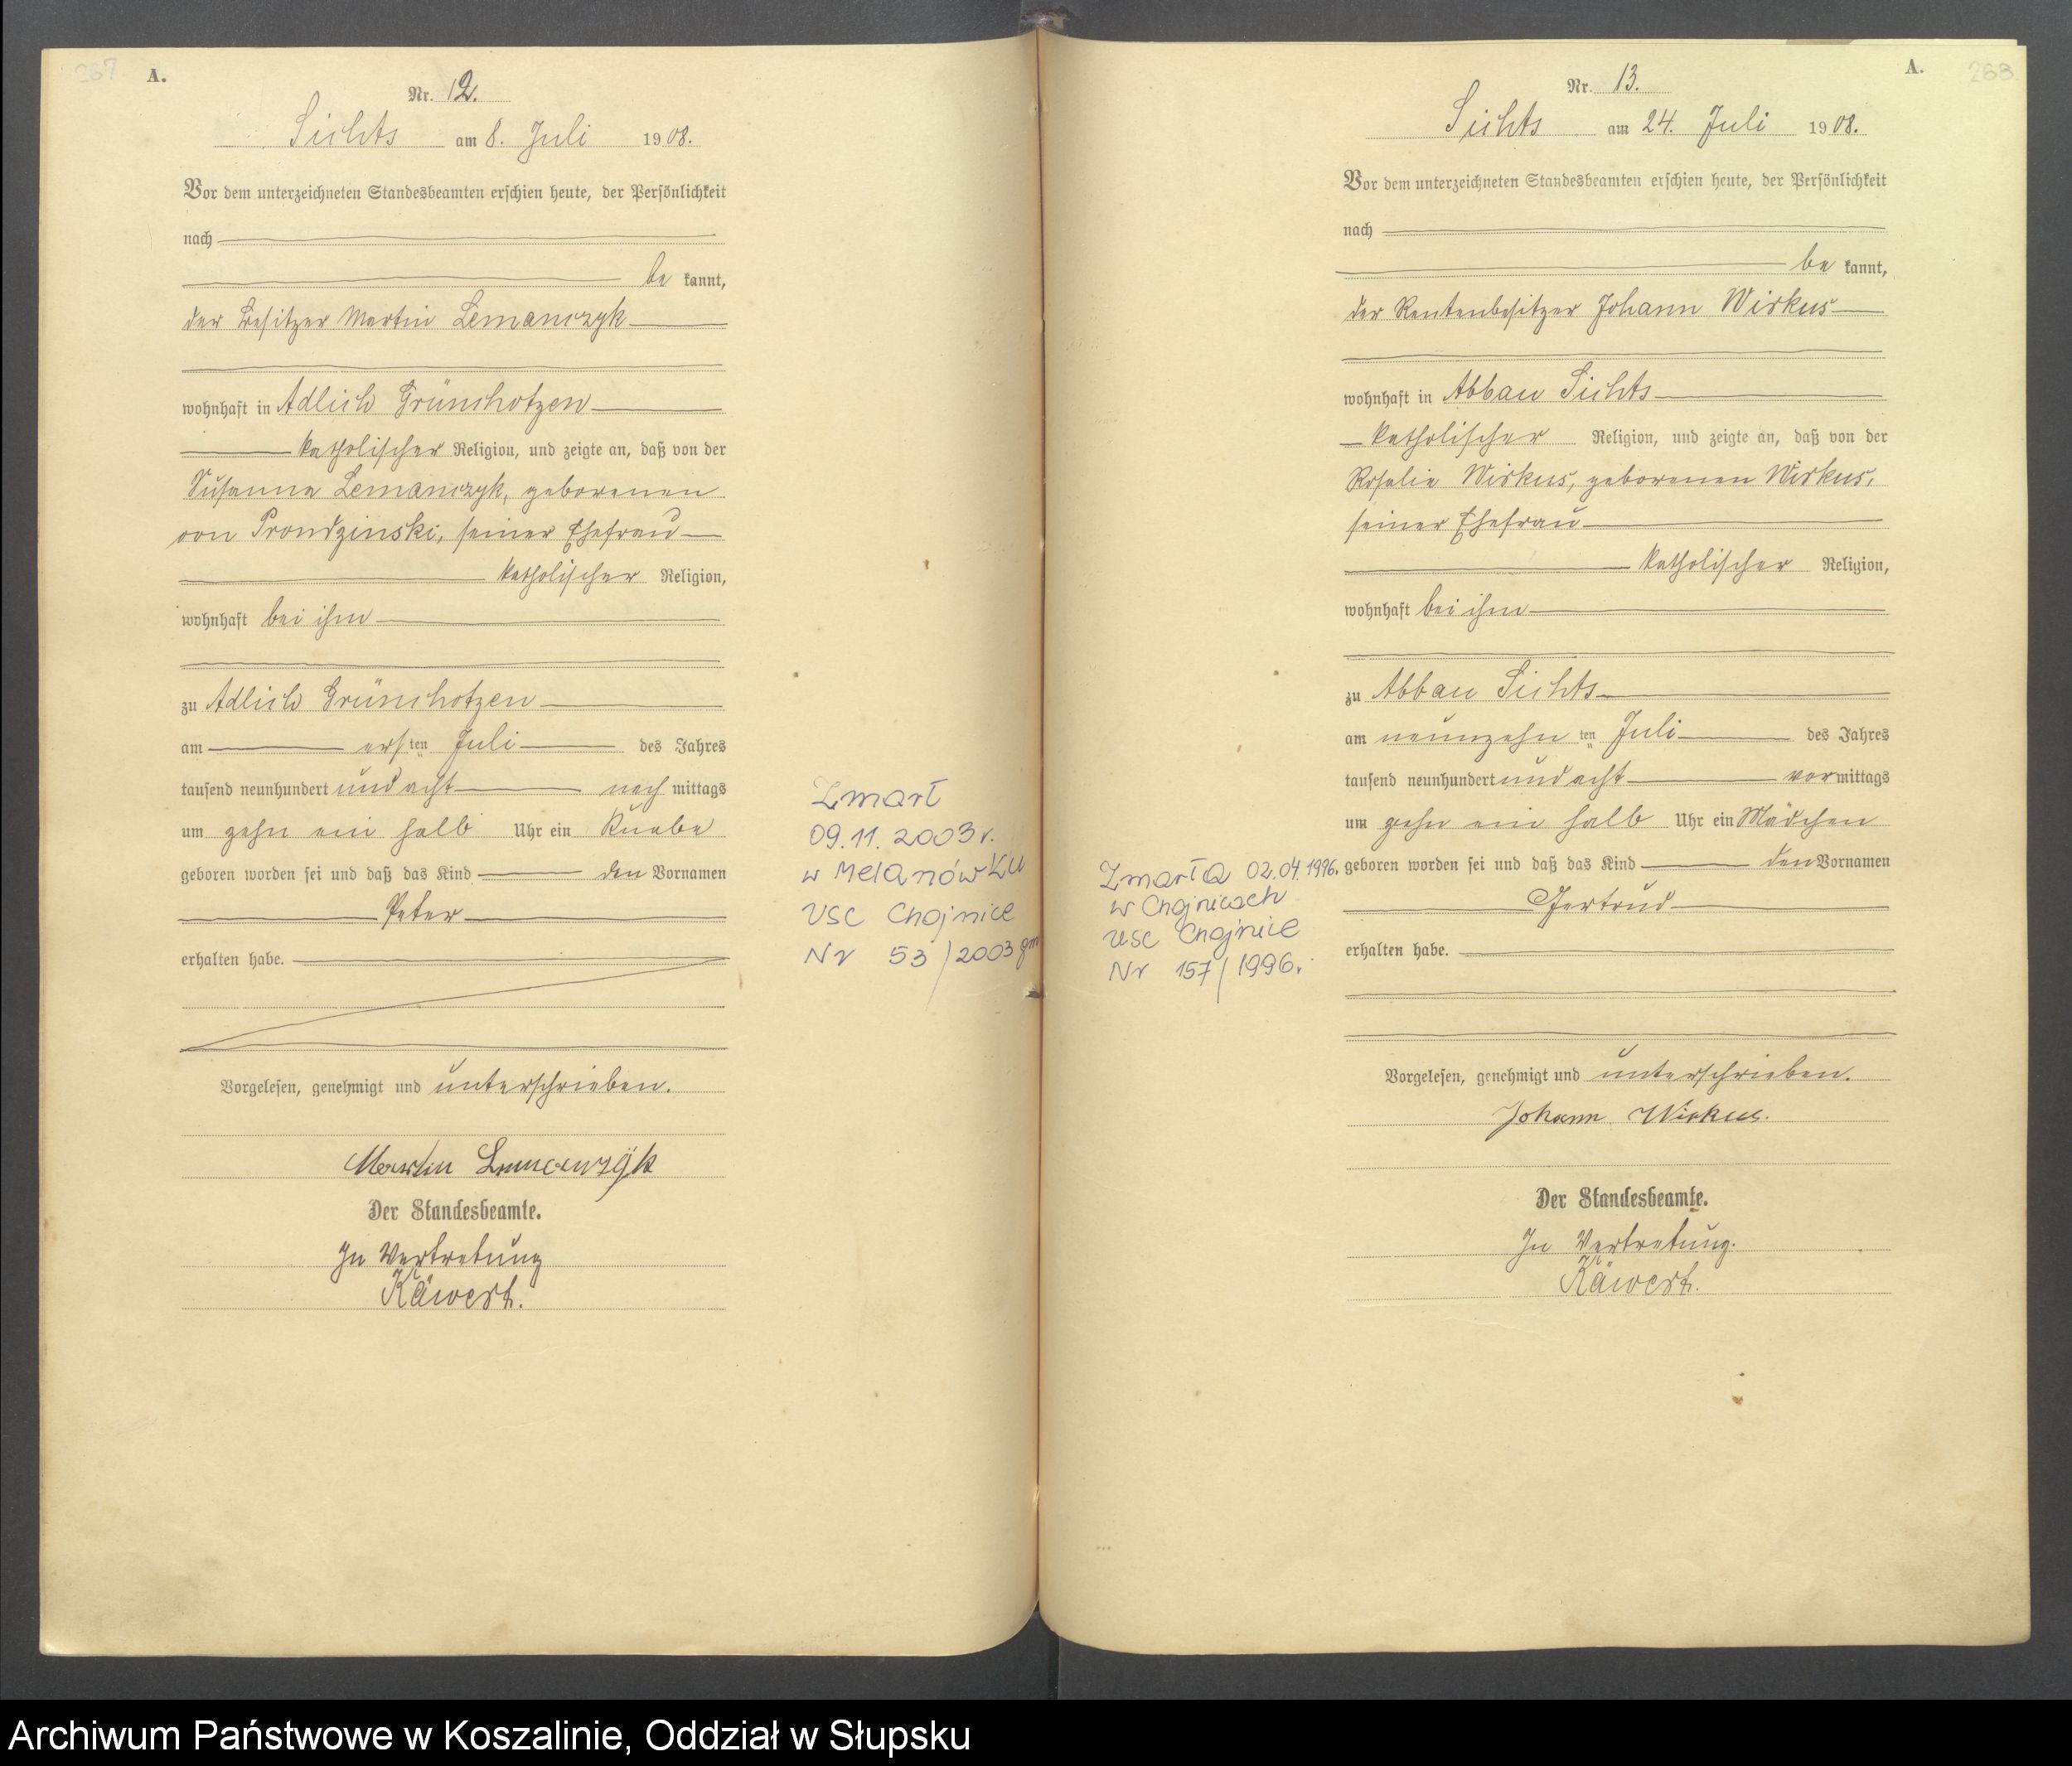 267.
A.
Nr. 12.
Sichts am 8. Juli 1908.
Vor dem unterzeichneten Standesbeamten erschien heute, der Persönlichkeit
nach
be kannt,
der Besitzer Martin Lemanczyk
wohnhaft in Adlich Grünchotzen
katholischer Religion, und zeigte an, daß von der
Susanna Lemanczyk, geborenen
von Prondzinski, seiner Ehefrau
katholischer Religion,
wohnhaft bei ihm
zu Adlich Grünchotzen
am ersten Juli des Jahres
tausend neunhundert und acht nachmittags
um zehn ein halb Uhr ein Knabe
geboren worden sei und daß das Kind den Vornamen
Peter
erhalten habe.
Vorgelesen, genehmigt und unterschrieben.
Martin Lemanczÿk
Der Standesbeamte.
In Vertretung
Käwert.
Zmarł
09.11.2003r.
w Melanówku
USC Chojnice
Nr 53/2003 gm
A.
268.
Nr. 13.
Sichts am 24. Juli 1908.
Vor dem unterzeichneten Standesbeamten erschien heute, der Persönlichkeit
nach
be kannt,
der Rentenbesitzer Johann Wirkus
wohnhaft in Abbau Sichts
katholischer Religion, und zeigte an, daß von der
Rosalie Wirkus, geborenen Wirkus,
seiner Ehefrau
katholischer Religion,
wohnhaft bei ihm
zu Abbau Sichts
am neunzehnten Juli des Jahres
tausend neunhundert und acht vormittags
um zehn ein halb Uhr ein Mädchen
geboren worden sei und daß das Kind den Vornamen
Gertrud
erhalten habe.
Vorgelesen, genehmigt und unterschrieben.
Johann Wirkus.
Der Standesbeamte.
In Vertretung.
Käwert.
Zmarła 02.04.1996.
w Chojnicach
USC Chojnice
Nr 157/1996.
Archiwum Państwowe w Koszalinie, Oddział w Słupsku